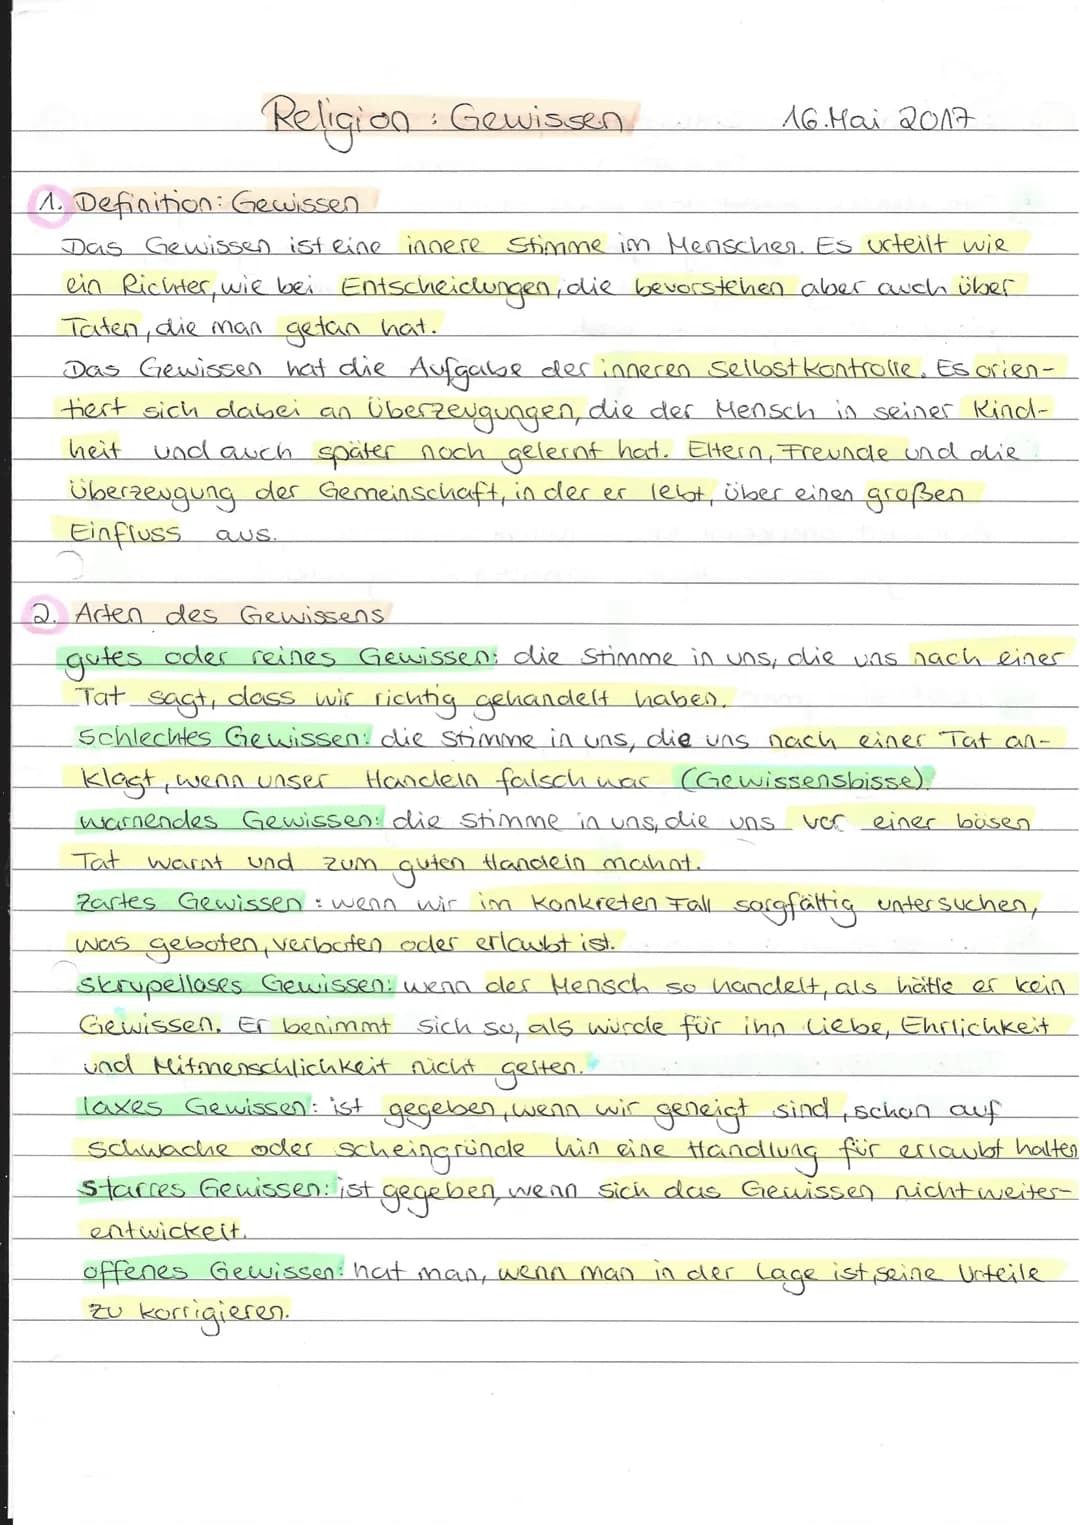 Religion : Gewissen 16. Mai 2017
1. Definition: Gewissen
Das Gewissen ist eine innere Stimme im Menschen. Es urteilt wie
ein Richter, wie bei Entscheidungen, die bevorstehen aber auch über
Taten, die man getan hat.
Das Gewissen hat die Aufgabe der inneren Selbstkontrolle. Es orien-
tiert sich dabei an Überzeugungen, die der Mensch in seiner Kind-
heit und auch später noch gelernt hat. Eltern, Freunde und die
Überzeugung der Gemeinschaft, in der er lebt, über einen großen
Einfluss aus.
2. Arten des Gewissens
gutes oder reines Gewissen: die Stimme in uns, die uns nach einer
Tat sagt, dass wir richtig gehandelt haben.
Schlechtes Gewissen: die Stimme in uns, die uns nach einer Tat an-
klagt, wenn unser Handeln falsch war (Gewissensbisse).
warnendes Gewissen: die Stimme in uns, die uns vor einer bösen
Tat warnt und zum guten Handeln mahnt.
zartes Gewissen : wenn wir im konkreten Fall sorgfältig untersuchen,
was geboten, verboten oder erlaubt ist.
skrupelloses Gewissen: wenn der Mensch so handelt, als hätte er kein
Gewissen. Er benimmt sich so, als würde für ihn Liebe, Ehrlichkeit
und Mitmenschlichkeit nicht gelten.
laxes Gewissen: ist gegeben, wenn wir geneigt sind, schon auf
schwache oder scheingründe hin eine Handlung für erlaubt halten
Starres Gewissen: ist gegeben, wenn sich das Gewissen nicht weiter-
entwickelt.
offenes Gewissen: hat man, wenn man in der Lage ist, seine Urteile
zu korrigieren.